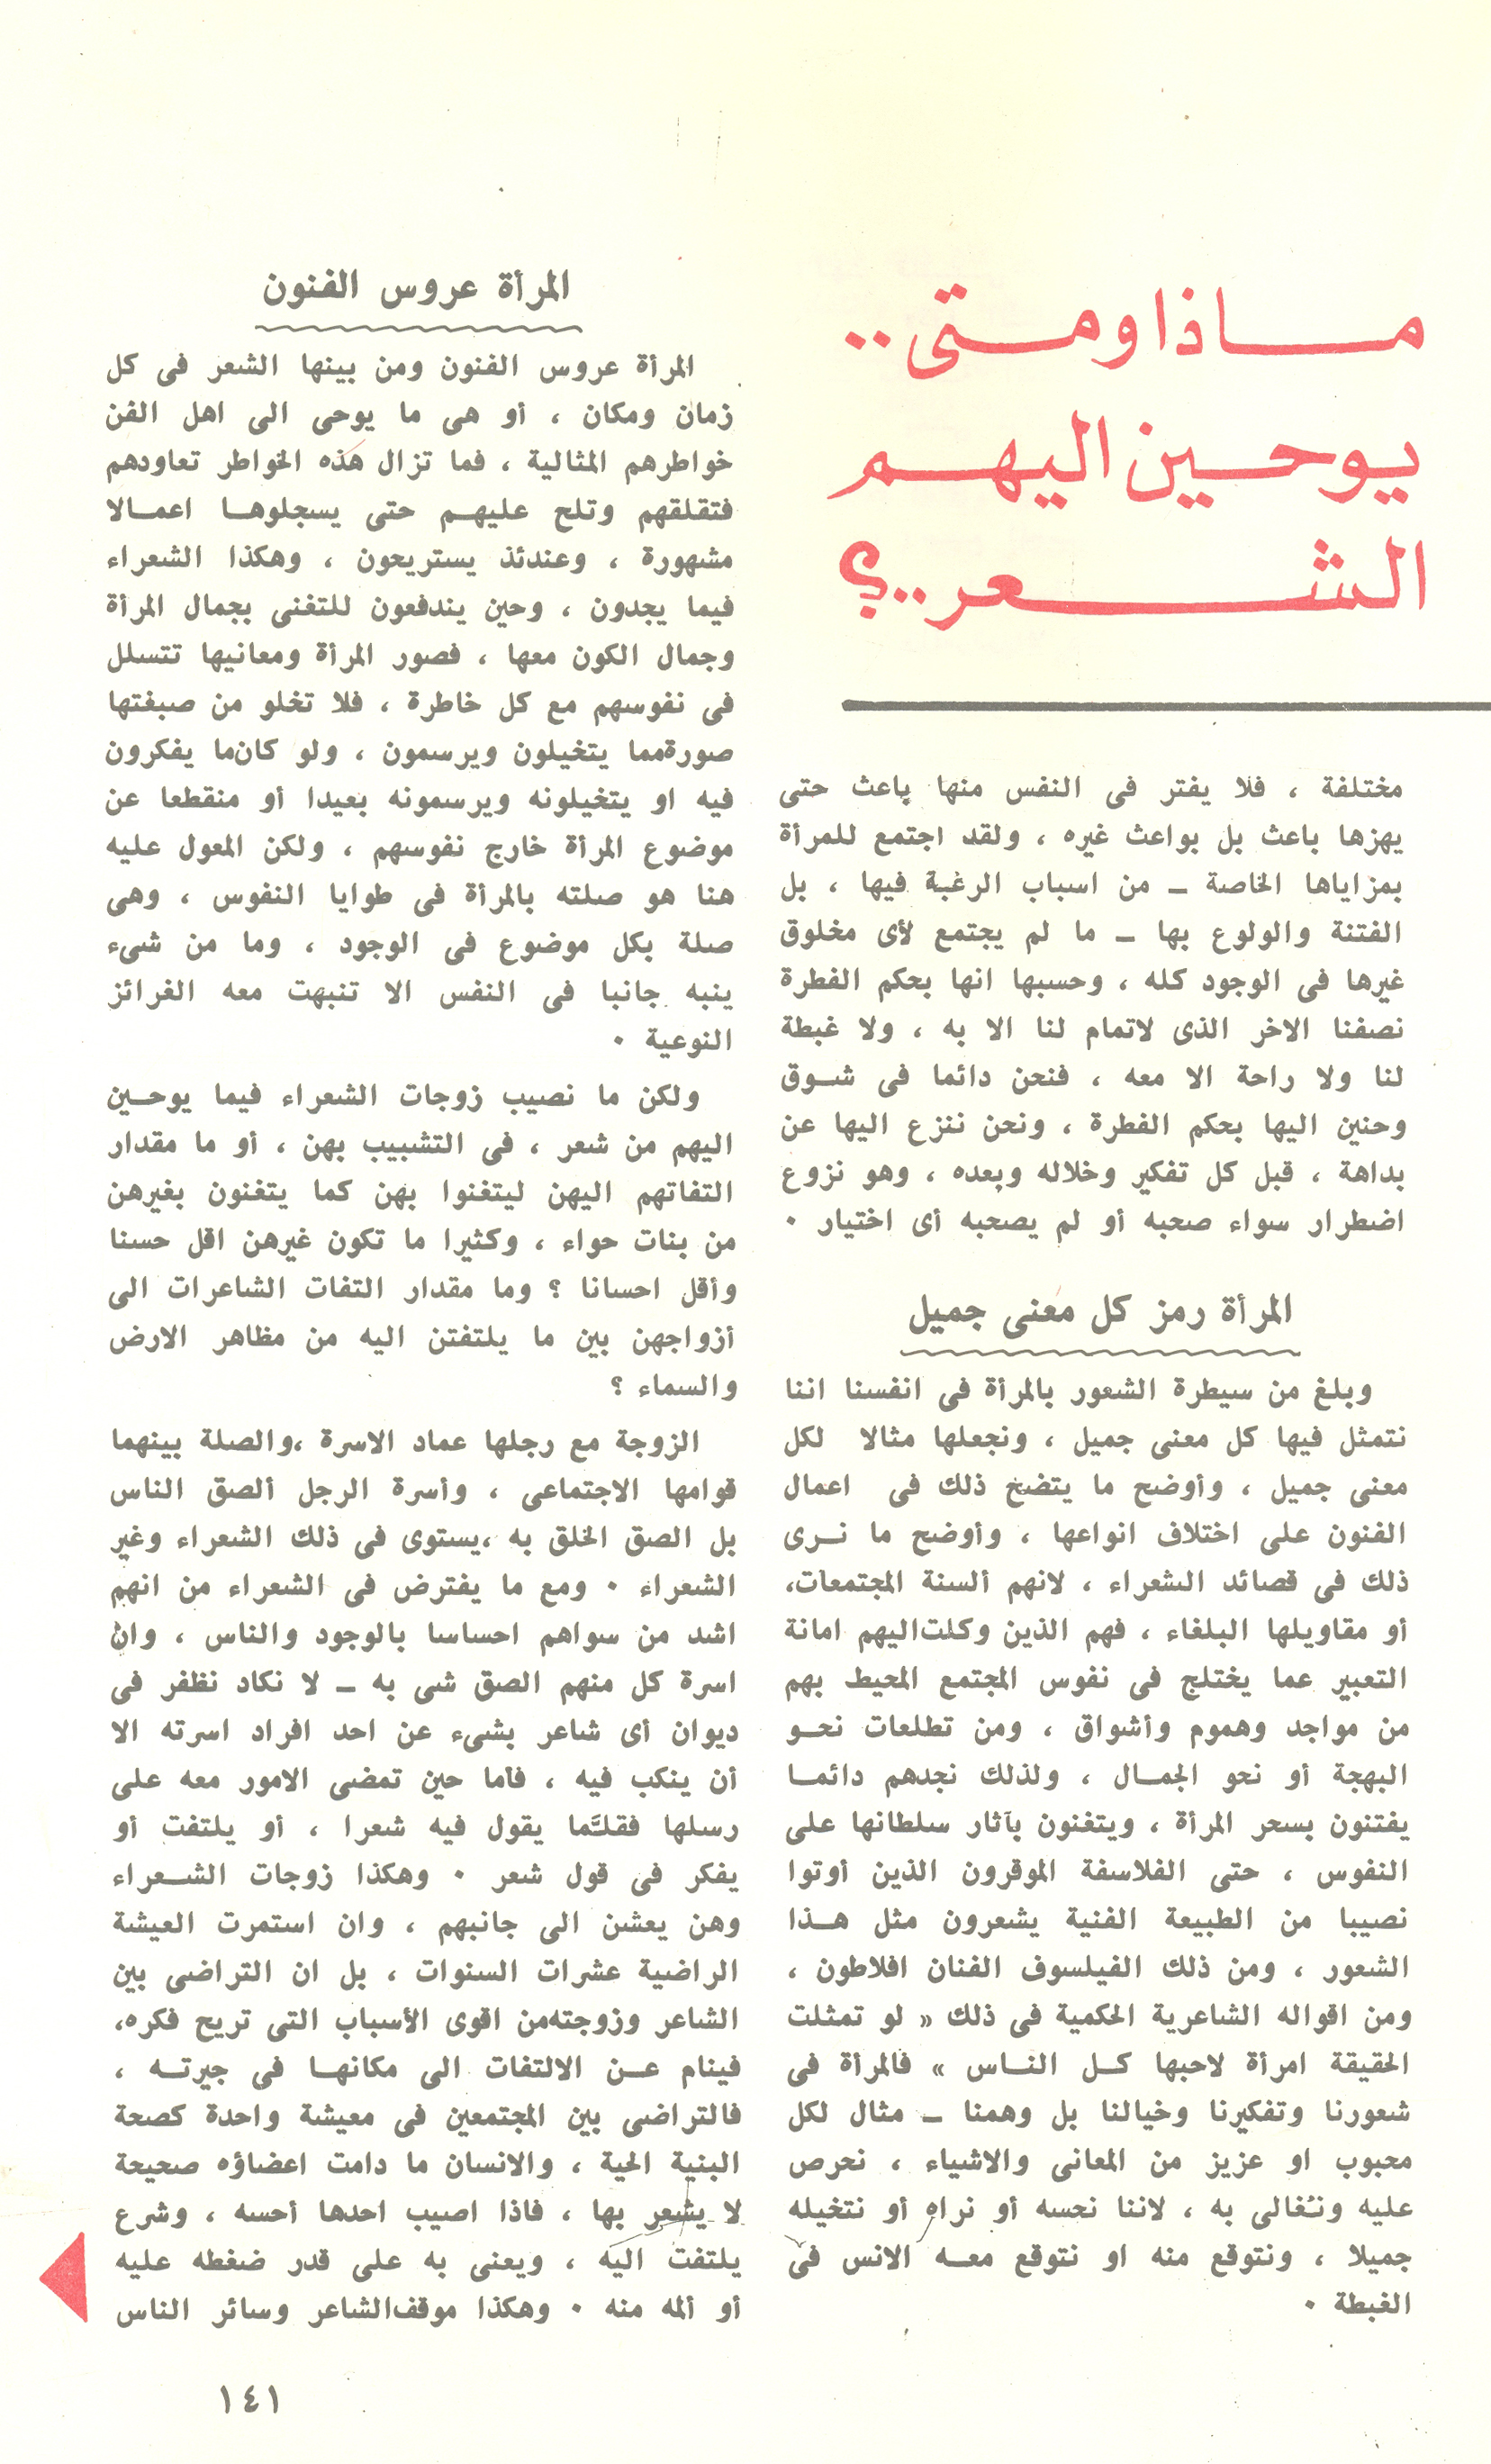 مـــاذا ومـــتى ..
يـوحـــين اليهـــم
الشـــــعر .. ؟
مختلفة ، فلا يفتر فى النفس منها باعث حتى
يهزها باعث بل بواعث غيره ، ولقد اجتمع للمرأة
بمزاياها الخاصة ـ من اسباب الرغبة فيها ، بل
الفتنة والولوع بها ـ ما لم يجتمع لأى مخلوق
غيرها فى الوجود كله ، وحسبها انها بحكم الفطرة
نصفنا الاخر الذى لاتمام لنا الا به ، ولا غبطة
لنا ولا راحة الا معه ، فنحن دائما فى شـوق
وحنين اليها بحكم الفطرة ، ونحن ننزع اليها عن
بداهة ، قبل كل تفكير وخلاله وبعده ، وهو نزوع
اضطرار سواء صحبه أو لم يصحبه أى اختيار ٠
المرأة رمز كل معنى جميل
وبلغ من سيطرة الشعور بالمرأة فى انفسنا اننا
نتمثل فيها كل معنى جميل ، ونجعلها مثالا لكل
معنى جميل ، وأوضح ما يتضخ ذلك فى اعمال
الفنون على اختلاف انواعها ، وأوضح ما نـرى
ذلك فى قصائد الشعراء ، لانهم ألسنة المجتمعات،
أو مقاويلها البلغاء ، فهم الذين وكلت اليهم امانة
التعبير عما يختلج فى نفوس المجتمع المحيط بهم
من مواجد وهموم وأشواق ، ومن تطلعات نحـو
البهجة أو نحو الجمـال ، ولذلك نجدهم دائمـا
يفتنون بسحر المرأة ، ويتغنون بآثار سلطانها على
النفوس ، حتى الفلاسفة الموقرون الذين أوتوا
نصيبا من الطبيعة الفنية يشعرون مثل هـذا
الشعور ، ومن ذلك الفيلسوف الفنان افلاطون ،
ومن اقواله الشاعرية الحكمية فى ذلك « لو تمثلت
الحقيقة امرأة لاحبها كـل النـاس » فالمرأة فى
شعورنا وتفكيرنا وخيالنا بل وهمنا ـ مثال لكل
محبوب او عزيز من المعانى والاشياء ، نحرص
عليه ونُغالى به ، لاننا نحسه أو نراه أو نتخيله
جميلا ، ونتوقع منه او نتوقع معـه الانس فى
الغبطة ٠
المرأة عروس الفنون
المرأة عروس الفنون ومن بينها الشعر فى كل
زمان ومكان ، أو هى ما يوحى الى اهل الفن
خواطرهم المثالية ، فما تزال هذه الخواطر تعاودهم
فتقلقهم وتلح عليهـم حتى يسجلوهـا اعمـالا
مشهورة ، وعندئذ يستريحون ، وهكذا الشعراء
فيما يجدون ، وحين يندفعون للتغنى بجمال المرأة
وجمال الكون معها ، فصور المرأة ومعانيها تتسلل
فى نفوسهم مع كل خاطرة ، فلا تخلو من صبغتها
صورةمما يتخيلون ويرسمون ، ولو كان ما يفكرون
فيه او يتخيلونه ويرسمونه بعيدا أو منقطعا عن
موضوع المرأة خارج نفوسهم ، ولكن المعول عليه
هنا هو صلته بالمرأة فى طوايا النفوس ، وهى
صلة بكل موضوع فى الوجود ، وما من شىء
ينبه جانبا فى النفس الا تنبهت معه الغرائز
النوعية ٠
ولكن ما نصيب زوجات الشعراء فيما يوحـين
اليهم من شعر ، فى التشبيب بهن ، أو ما مقدار
التفاتهم اليهن ليتغنوا بهن كما يتغنون بغيرهن
من بنات حواء ، وكثيرا ما تكون غيرهن اقل حسنا
وأقل احسانا ؟ وما مقدار التفات الشاعرات الى
أزواجهن بين ما يلتفتن اليه من مظاهر الارض
والسماء ؟
الزوجة مع رجلها عماد الاسرة ،والصلة بينهما
قوامها الاجتماعى ، وأسرة الرجل ألصق الناس
بل الصق الخلق به ،يستوى فى ذلك الشعراء وغير
الشعراء ٠ ومع ما يفترض فى الشعراء من انهم
اشد من سواهم احساسا بالوجود والناس ، وان
اسرة كل منهم الصق شى به ـ لا نكاد نظفر فى
ديوان أى شاعر بشىء عن احد افراد اسرته الا
أن ينكب فيه ، فأما حين تمضى الامور معه على
رسلها فقلّما يقول فيه شعرا ، أو يلتفت أو
يفكر فى قول شعر ٠ وهكذا زوجات الشـعراء
وهن يعشن الى جانبهم ، وان استمرت العيشة
الراضية عشرات السنوات ، بل ان التراضى بين
الشاعر وزوجته من اقوى الأسباب التى تريح فكره،
فينام عـن الالتفات الى مكانهـا فى جيرتـه ،
فالتراضى بين المجتمعين فى معيشة واحدة كصحة
البنية الحية ، والانسان ما دامت اعضاؤه صحيحة
لا يشعر بها ، فاذا اصيب احدها أحسه ، وشرع
يلتفت اليه ، ويعنى به على قدر ضغطه عليه
أو ألمه منه ٠ وهكذا موقف الشاعر وسائر الناس
١٤١